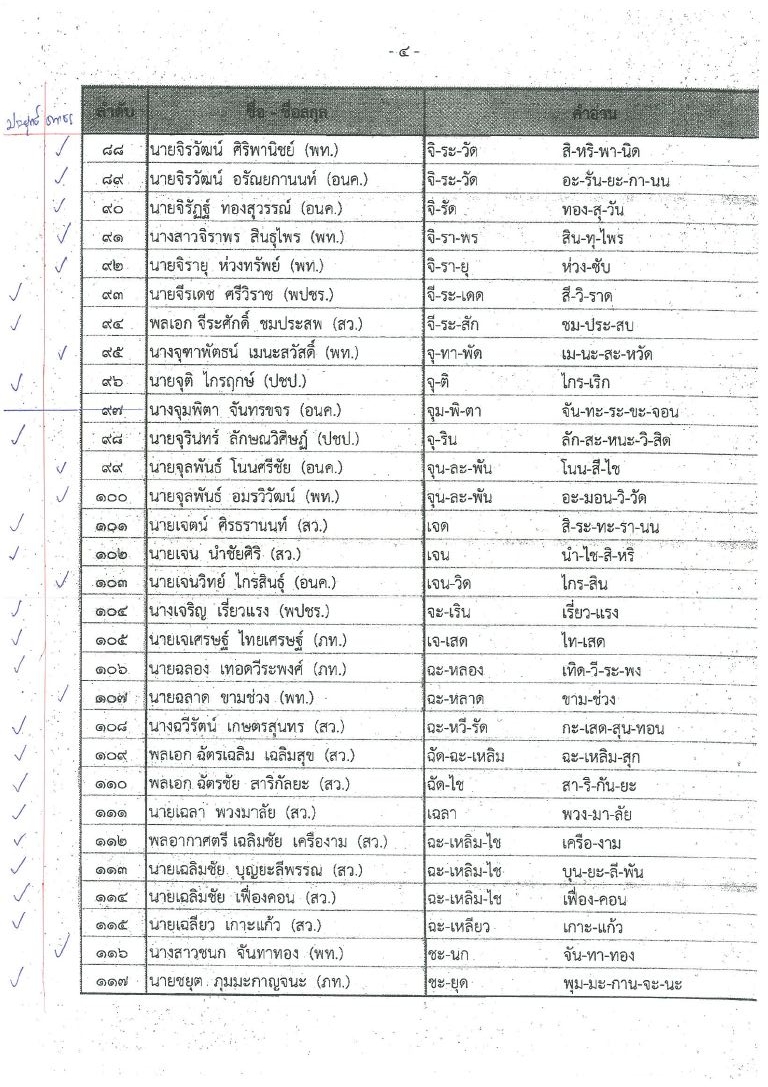 - ๔ -
ประยุทธ์ ธนาธร
ลำดับ ชื่อ - ชื่อสกุล คำอ่าน
๘๘ นายจิรวัฒน์ ศิริพานิชย์ (พท.) จิ-ระ-วัด สิ-หริ-พา-นิด
๘๙ นายจิรวัฒน์ อรัณยกานนท์ (อนค.) จิ-ระ-วัด อะ-รัน-ยะ-กา-นน
๙๐ นายจิรัฏฐ์ ทองสุวรรณ์ (อนค.) จิ-รัด ทอง-สุ-วัน
๙๑ นางสาวจิราพร สินธุไพร (พท.) จิ-รา-พร สิน-ทุ-ไพร
๙๒ นายจิรายุ ห่วงทรัพย์ (พท.) จิ-รา-ยุ ห่วง-ซับ
๙๓ นายจีรเดช ศรีวิราช (พปชร.) จี-ระ-เดด สี-วิ-ราด
๙๔ พลเอก จีระศักดิ์ ชมประสพ (สว.) จี-ระ-สัก ชม-ประ-สบ
๙๕ นางจุฑาพัตธน์ เมนะสวัสดิ์ (พท.) จุ-ทา-พัด เม-นะ-สะ-หวัด
๙๖ นายจุติ ไกรฤกษ์ (ปชป.) จุ-ติ ไกร-เริก
๙๗ นางจุมพิตา จันทรขจร (อนค.) จุม-พิ-ตา จัน-ทะ-ระ-ขะ-จอน
๙๘ นายจุรินทร์ ลักษณวิศิษฏ์ (ปชป.) จุ-ริน ลัก-สะ-หนะ-วิ-สิด
๙๙ นายจุลพันธ์ โนนศรีชัย (อนค.) จุน-ละ-พัน โนน-สี-ไช
๑๐๐ นายจุลพันธ์ อมรวิวัฒน์ (พท.) จุน-ละ-พัน อะ-มอน-วิ-วัด
๑๐๑ นายเจตน์ ศิรธรานนท์ (สว.) เจด สิ-ระ-ทะ-รา-นน
๑๐๒ นายเจน นำชัยศิริ (สว.) เจน นำ-ไช-สิ-หริ
๑๐๓ นายเจนวิทย์ ไกรสินธุ์ (อนค.) เจน-วิด ไกร-สิน
๑๐๔ นางเจริญ เรี่ยวแรง (พปชร.) จะ-เริน เรี่ยว-แรง
๑๐๕ นายเจเศรษฐ์ ไทยเศรษฐ์ (ภท.) เจ-เสด ไท-เสด
๑๐๖ นายฉลอง เทอดวีระพงศ์ (ภท.) ฉะ-หลอง เทิด-วี-ระ-พง
๑๐๗ นายฉลาด ขามช่วง (พท.) ฉะ-หลาด ขาม-ช่วง
๑๐๘ นางฉวีรัตน์ เกษตรสุนทร (สว.) ฉะ-หวี-รัด กะ-เสด-สุน-ทอน
๑๐๙ พลเอก ฉัตรเฉลิม เฉลิมสุข (สว.) ฉัด-ฉะ-เหลิม ฉะ-เหลิม-สุก
๑๑๐ พลเอก ฉัตรชัย สาริกัลยะ (สว.) ฉัด-ไช สา-ริ-กัน-ยะ
๑๑๑ นายเฉลา พวงมาลัย (สว.) เฉลา พวง-มา-ลัย
๑๑๒ พลอากาศตรี เฉลิมชัย เครืองาม (สว.) ฉะ-เหลิม-ไช เครือ-งาม
๑๑๓ นายเฉลิมชัย บุญยะลีพรรณ (สว.) ฉะ-เหลิม-ไช บุน-ยะ-ลี-พัน
๑๑๔ นายเฉลิมชัย เฟื่องคอน (สว.) ฉะ-เหลิม-ไช เฟื่อง-คอน
๑๑๕ นายเฉลียว เกาะแก้ว (สว.) ฉะ-เหลียว เกาะ-แก้ว
๑๑๖ นางสาวชนก จันทาทอง (พท.) ชะ-นก จัน-ทา-ทอง
๑๑๗ นายชยุต ภุมมะกาญจนะ (ภท.) ชะ-ยุด พุม-มะ-กาน-จะ-นะ